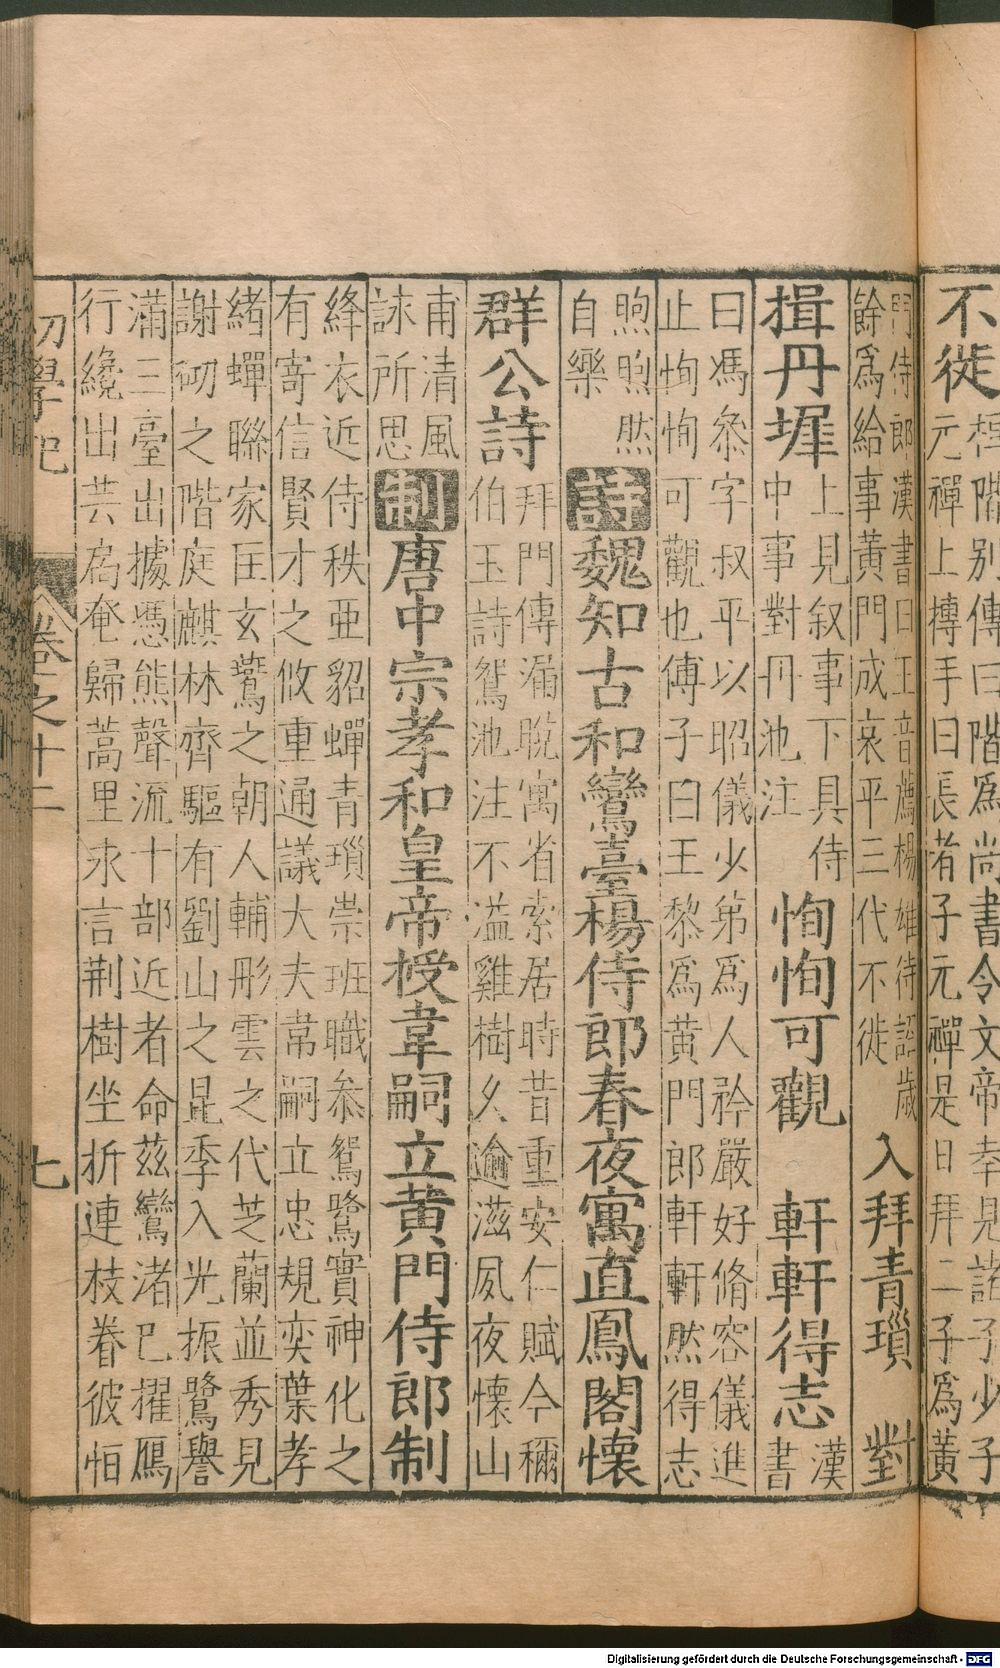 不徙
桯階别傳曰階爲尚書令文帝奉見諸子少子
元禪上摶手曰長者子元禪是日拜二子爲黃
門侍郎漢書曰王音薦楊雄待詔歲
餘爲給事黃門成哀平三代不徙
入拜青瑣 對
揖丹墀
上見叙事下具侍
中事對丹池注
恂恂可觀 軒軒得志
漢
書
曰馮叅字叔平以昭儀少第爲人矜嚴好脩容儀進
止恂恂可觀也傅子曰王黎爲黄門郎軒軒然得志
煦煦然
自樂
詩
魏知古和鸞臺楊侍郎春夜寓直鳳閣懷
群公詩
拜門傳漏晩寓省索居時昔重安仁賦今稱
伯玉詩鴛池注不溢雞樹久逾滋夙夜懷山
甫清風
詠所思
制
唐中宗孝和皇帝授韋嗣立黄門侍郎制
絳衣近侍秩亞貂蟬青瑣崇班職叅鴛鷺實神化之
有寄信賢才之攸重通議大夫常嗣立忠規奕葉孝
緒蟬聯家匡玄鷟之朝人輔彤雲之代芝蘭並秀見
謝砌之階庭麒林齊驅有劉山之昆季入光振鷺譽
滿三臺出據憑熊聲流十部近者命茲鸞渚巳擢鴈
行纔出芸扃奄歸蒿里永言荆樹坐折連枝眷彼恒
初學記 卷之十二 七
Digitalisierung gefördert durch die Deutsche Forschungsgemeinschaft - DFG